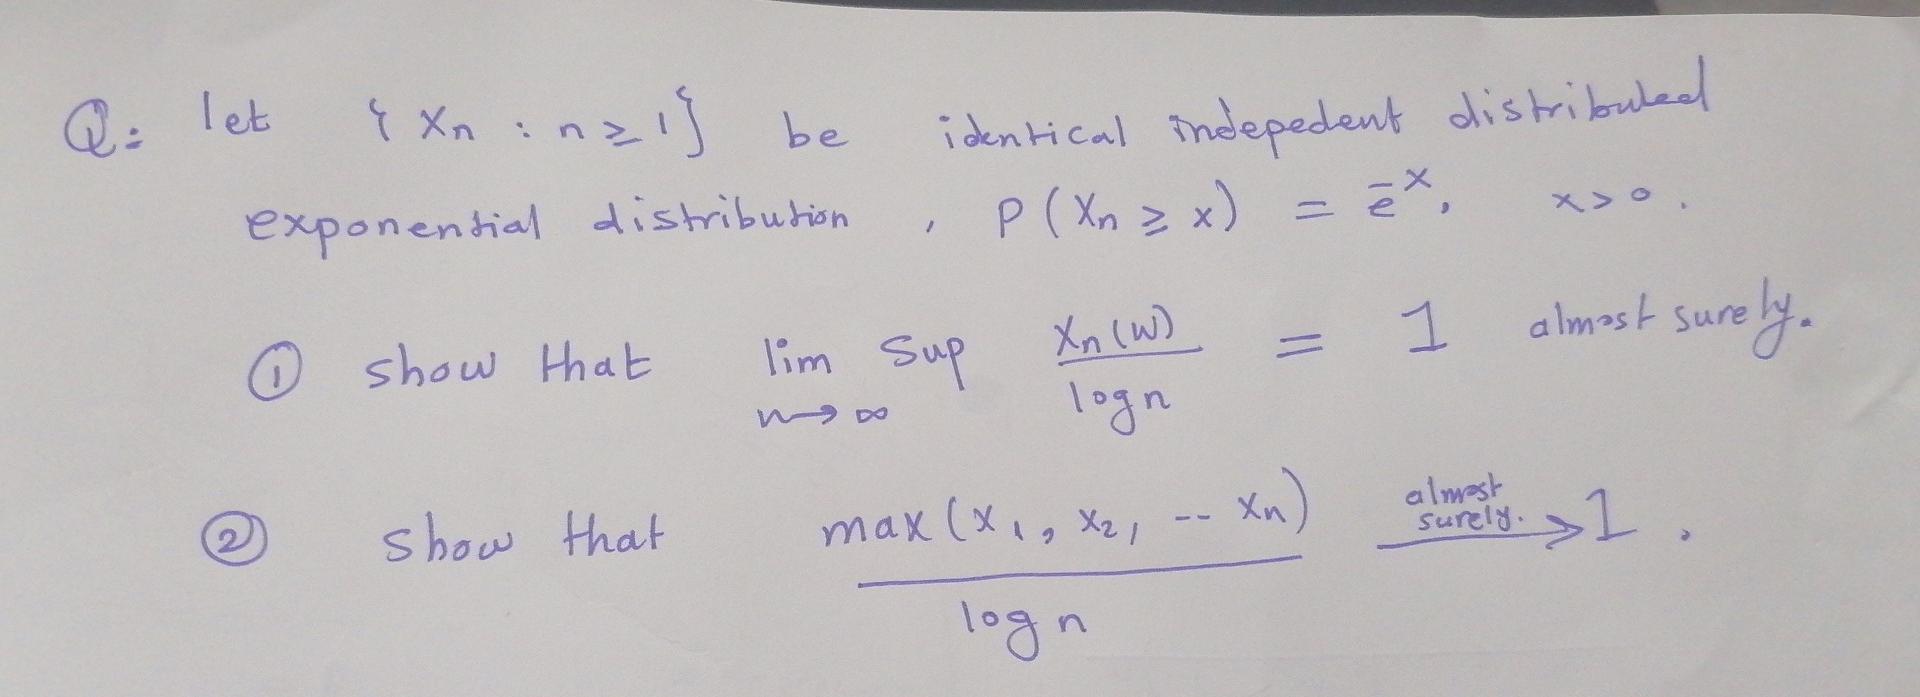 Q: let { Xn : n ≥ 1} be identical indepedent distributed
exponential distribution , P(Xn ≥ x) = e^-x, x>0.
① show that lim sup n→∞ Xn(w)/log n = 1 almost surely.
② show that max(X1, X2, -- Xn)/log n almost surely. → 1 .